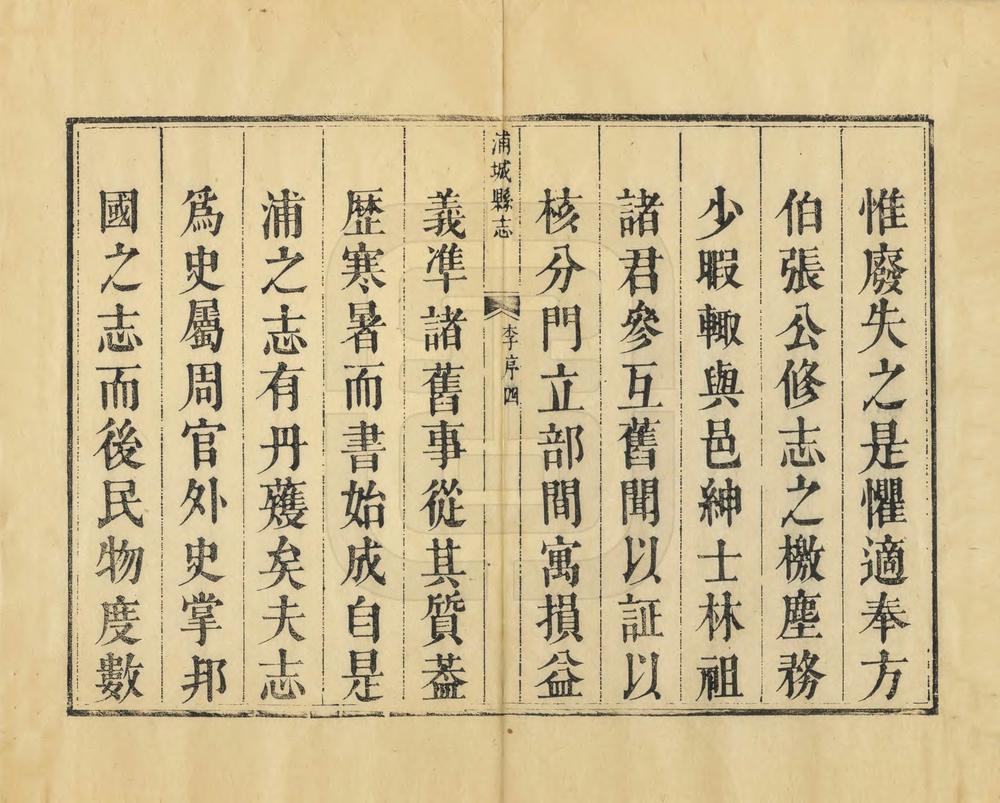 惟廢失之是懼適奉方
伯張公修志之檄塵務
少暇輙與邑紳士林祖
諸君參互舊聞以証以
核分門立部間寓損益
浦城縣志
李序四
義準諸舊事從其質葢
歷寒暑而書始成自是
浦之志有丹雘矣夫志
爲史屬周官外史掌邦
國之志而後民物度數